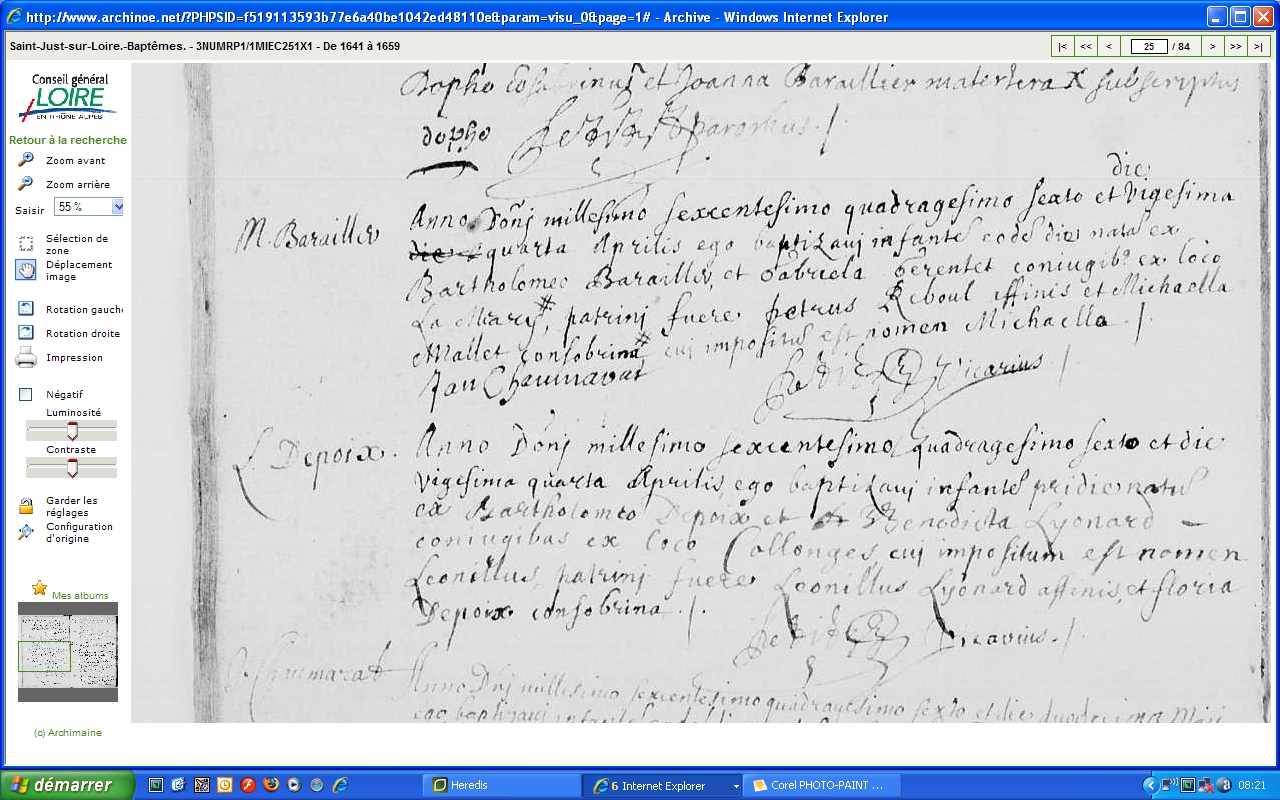 http://www.archinoe.net/?PHPSID=f519113593b77e6a40be1042ed48110e&param=visu_0&page=1# - Archive - Windows Internet Explorer
Saint-Just-sur-Loire.-Baptêmes. - 3NUMRP1/1MIEC251X1 - De 1641 à 1659
|< << < 25 / 84 > >> >|
Conseil général
LOIRE
EN RHÔNE ALPES
Retour à la recherche
Zoom avant
Zoom arrière
Saisir 55 %
Sélection de
zone
Déplacement
image
Rotation gauche
Rotation droite
Impression
Négatif
Luminosité
Contraste
Garder les
réglages
Configuration
d'origine
Mes albums
(c) Archimaine
et Joanna Baraillier matertera subscriptus
dopho
die
M. Baraillier
Anno Domj millesimo sexcentesimo quadragesimo sexto et Vigesima
quarta Aprilis ego baptizaui infante eode die nata ex
Bartholomeo Baraillier, et Gabriela Gerentet coniugib9 ex loco
La Mary, patrinj fuere petrus Reboul affinis et Michaella
Mallet consobrina cui impositu est nomen Michaella .|.
Vicarius .|
L. Depoix.
Anno Domj millesimo sexcentesimo quadragesimo sexto et die
Vigesima quarta Aprilis ego baptizaui infante pridie natu
ex Bartholomeo Depoix et Benedicta Lyonard
coniugibus ex loco Collonges cui impositum est nomen
Leonillus, patrinj fuere Leonillus Lyonard affinis, et floria
Depoix consobrina .|.
Vicarius .|
Chaumarat
Anno Dnj millesimo sexcentesimo quadragesimo sexto et die duodecima Maij
ego baptizaui
démarrer
Heredis
6 Internet Explorer
Corel PHOTO-PAINT ...
08:21